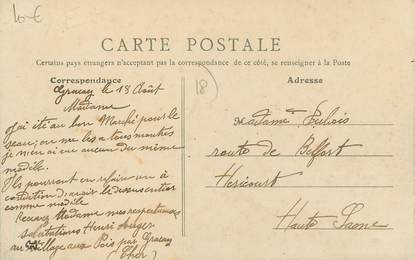 10-€
CARTE POSTALE
Certains pays étrangers n'acceptant pas la correspondance de ce côté, se renseigner à la Poste
Correspondance
Graçay le 18 Août
Madame
J'ai été au bon Marché pour le
seau; on me les a tous montrés
je n'en ai vu aucun du même
modèle.
Ils pourront en refaire un à
condition d'avoir le dessus entier
comme modèle
Recevez Madame mes respectueuses
salutations Henri Auger
au Village aux Pois par Graçay
(Cher)
18
Adresse
Madame Dubois
route de Belfort
Héricourt
Haute Saone